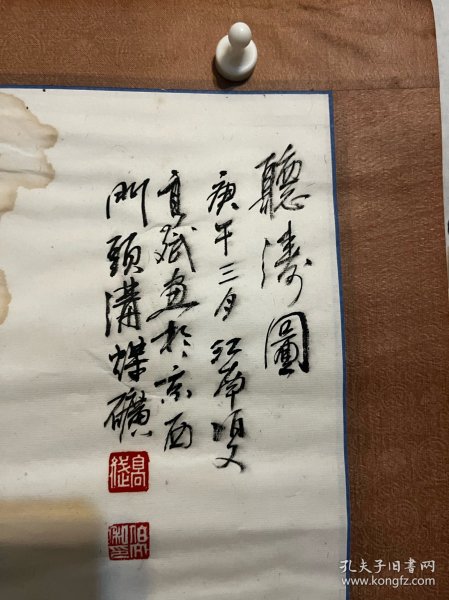 聽濤圖
庚午三月江南
畫於京西
門頭溝煤礦
孔夫子旧书网
www.kongfz.com